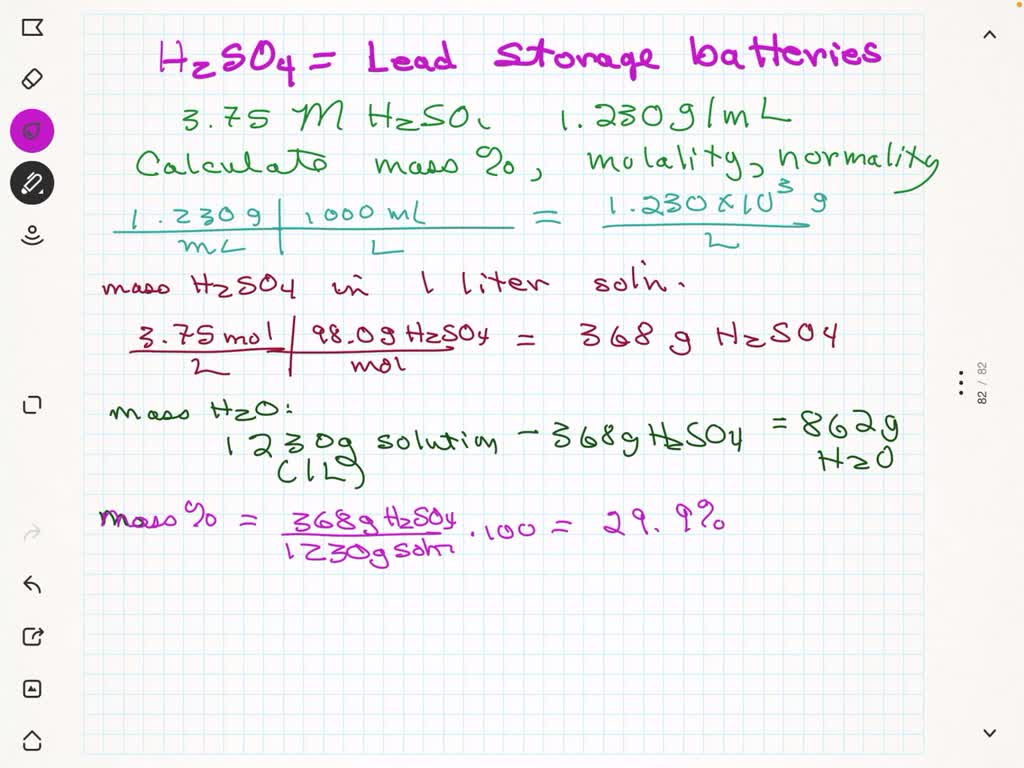 H2SO4 = Lead Storage batteries
3.75 M H2SO4 1.230g/mL
Calculate mass %, molality, normality
1.230g | 1000 mL = 1.230 x 10³ g
mL | L L
mass H2SO4 in 1 liter soln.
3.75 mol | 98.0g H2SO4 = 368 g H2SO4
L | mol
mass H2O:
1230g solution - 368g H2SO4 = 862g
(1L) H2O
mass % = 368g H2SO4 · 100 = 29.9%
1230g soln
82 / 82